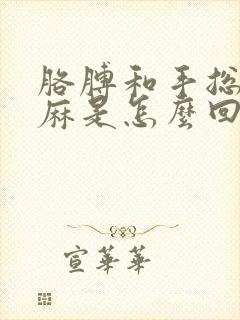 胳膊和手总
麻是怎麼回
宣華華